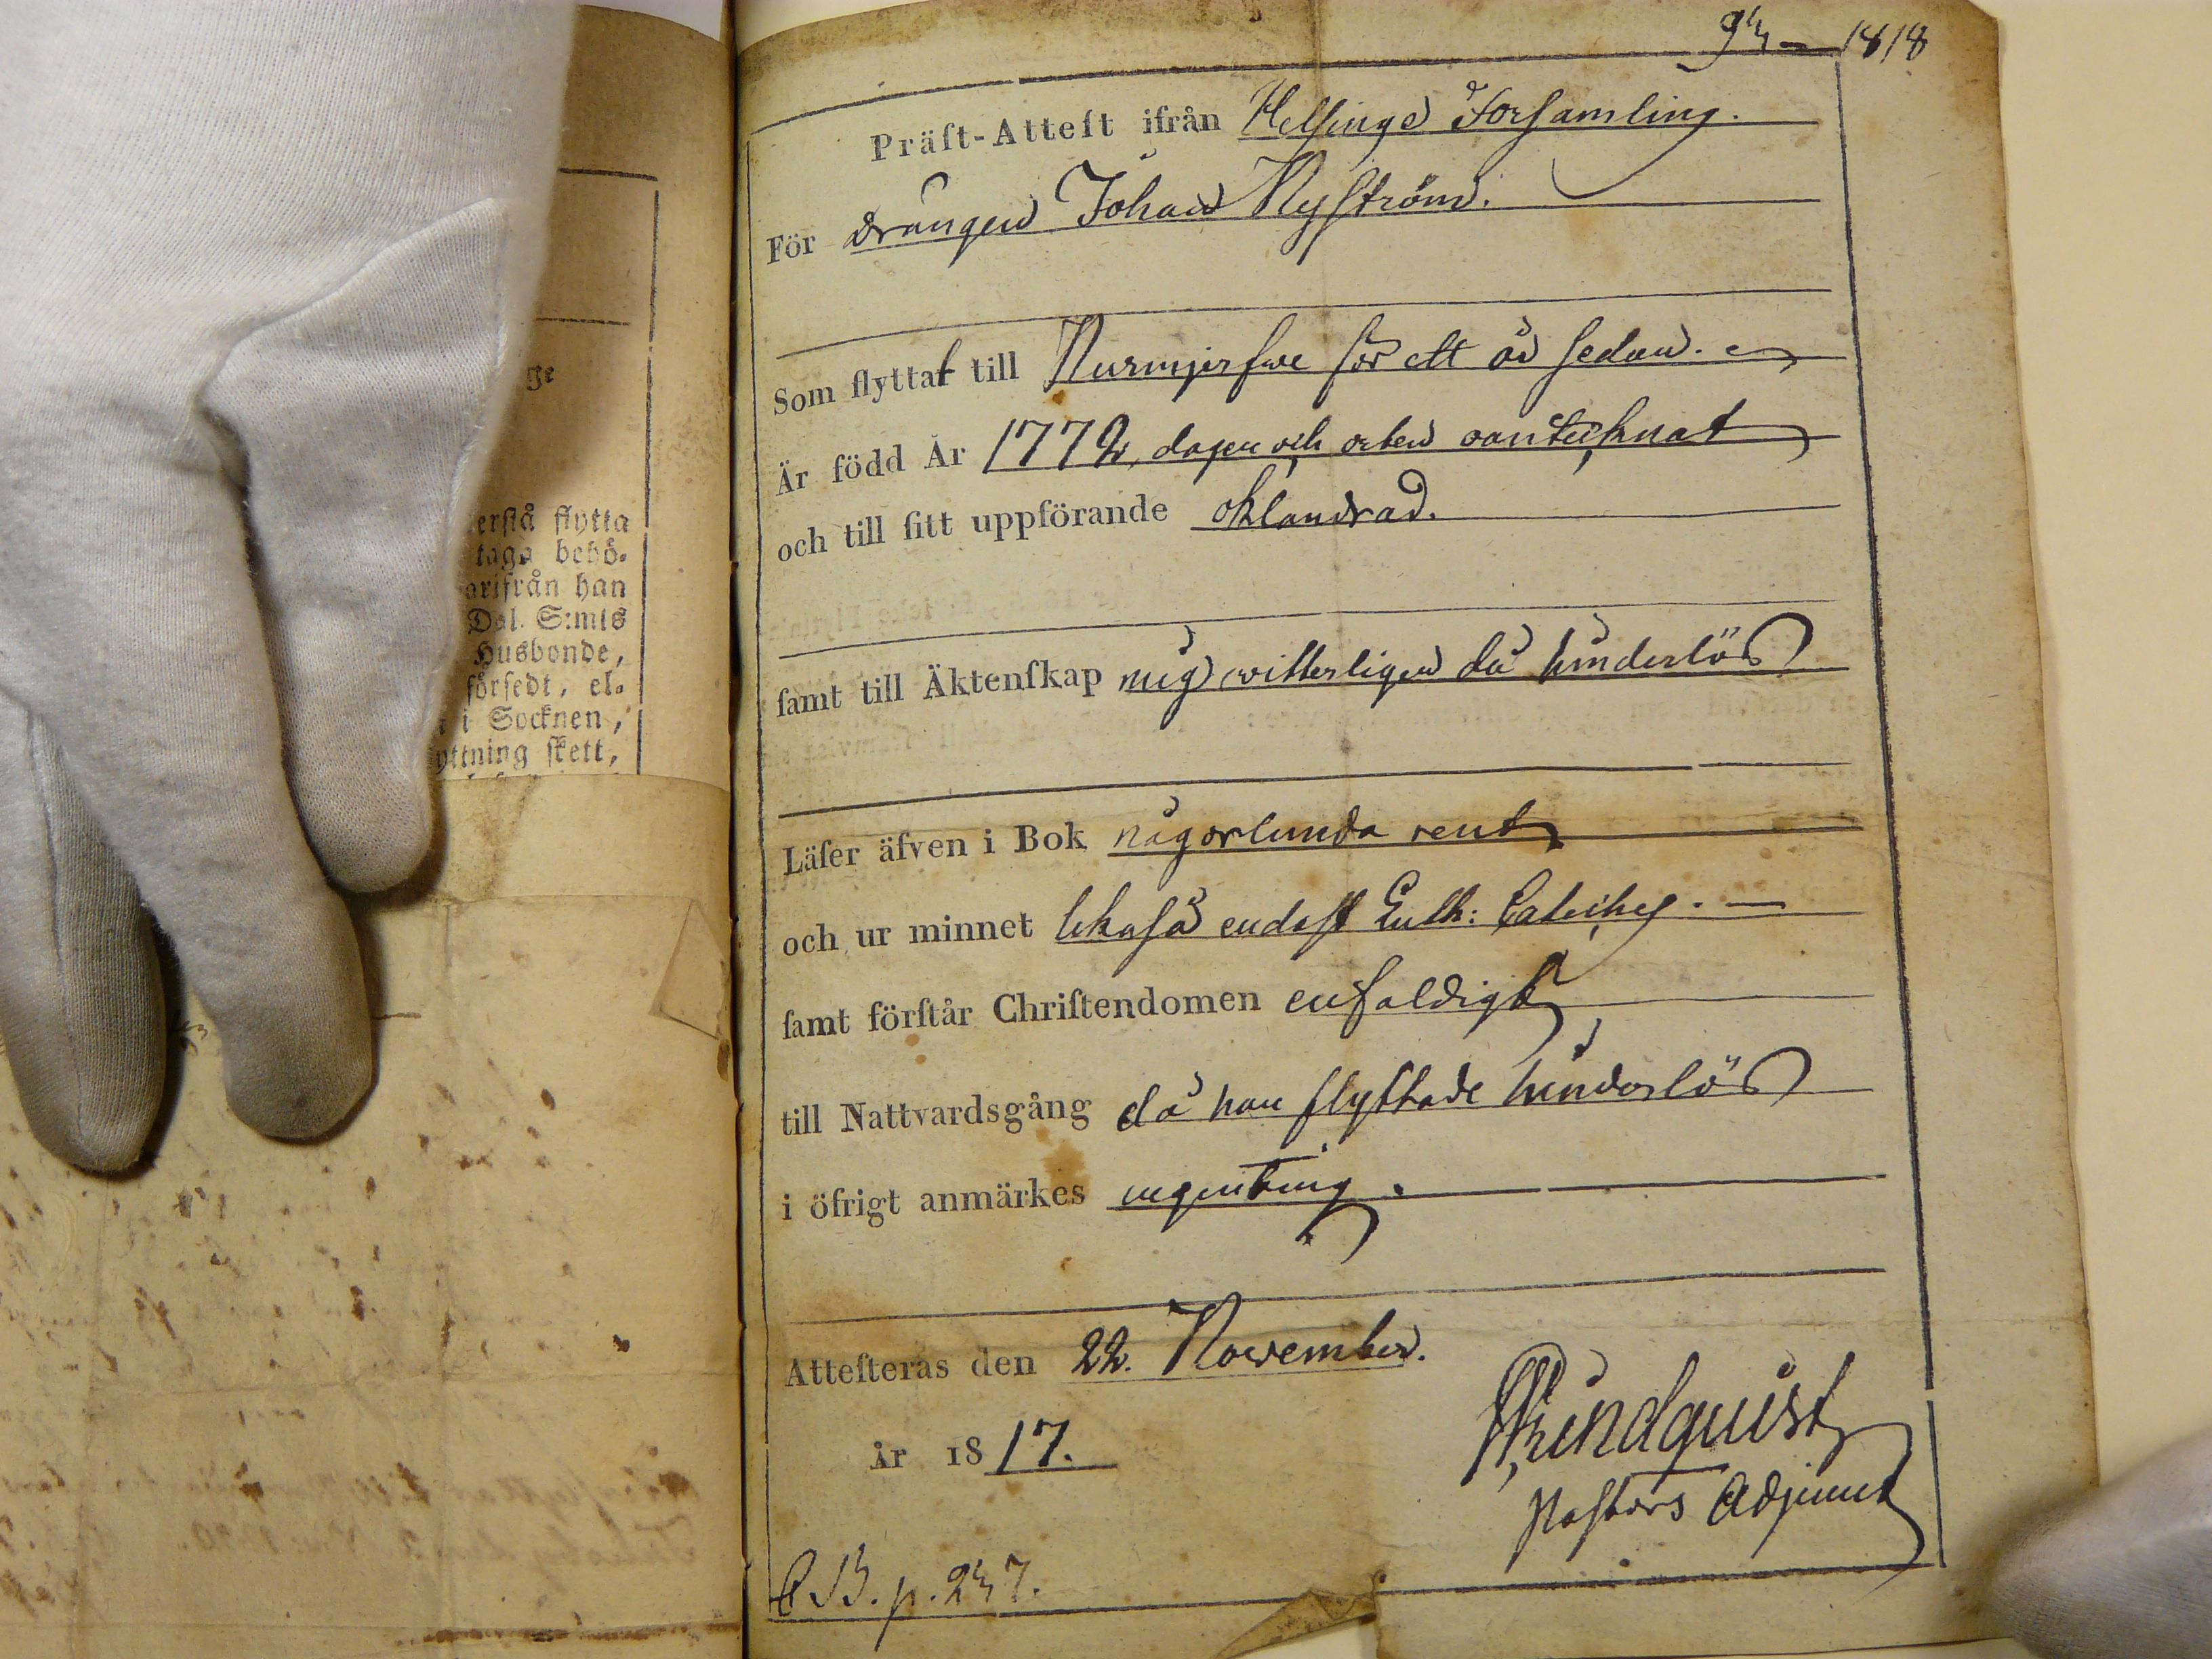 93 — 1818
Präſt-Atteſt ifrån Helſinge Forſamling.
För Drängen Johan Nyſtröm.
Som flyttat till Nurmjerfwe för ett år ſedan.
Är född År 1772, dagen och orten oantecknat
och till ſitt uppförande oklandrad.
ſamt till Äktenſkap mig witterligen då hinderlös
Läſer äfven i Bok någorlunda rent
och ur minnet likaſå endaſt Luth: Cateches. —
ſamt förſtår Chriſtendomen enfaldigt
till Nattvardsgång då han flyttade hinderlös
i öfrigt anmärkes ingenting.
Atteſteras den 22. November.
år 1817.
Lindquist
Paſtors Adjunct
C B. p. 237.
ge
erſlå flytta
taga behö-
arifrån han
Dal. S:mts
Husbonde,
förſedt, el-
i Socknen,
yttning ſkett,